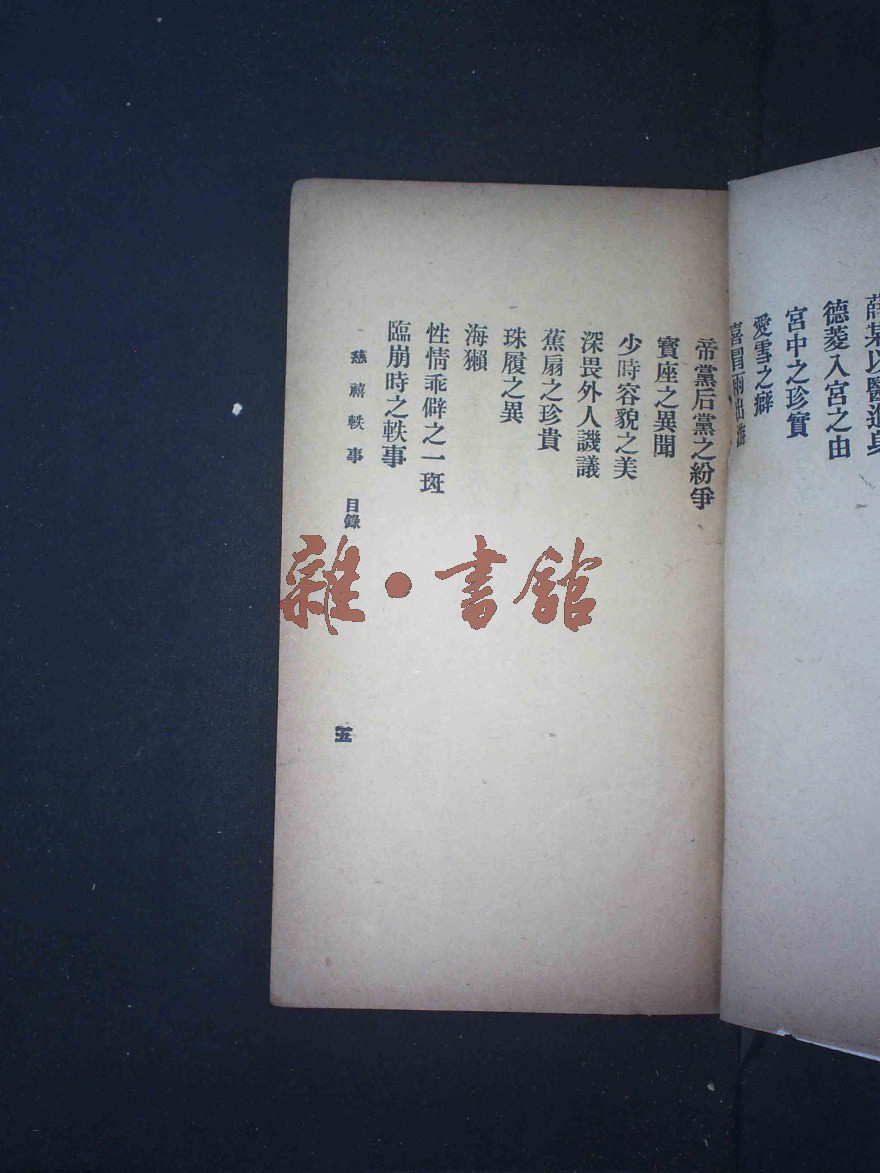 薛某以醫進身
德菱入宮之由
宮中之珍實
愛雪之癖
喜冒雨出游
帝黨后黨之紛爭
寳座之異聞
少時容貌之美
深畏外人譏議
蕉扇之珍貴
珠履之異
海獺
性情乖僻之一斑
臨崩時之軼事
慈禧軼事 目錄
五
雜·書館